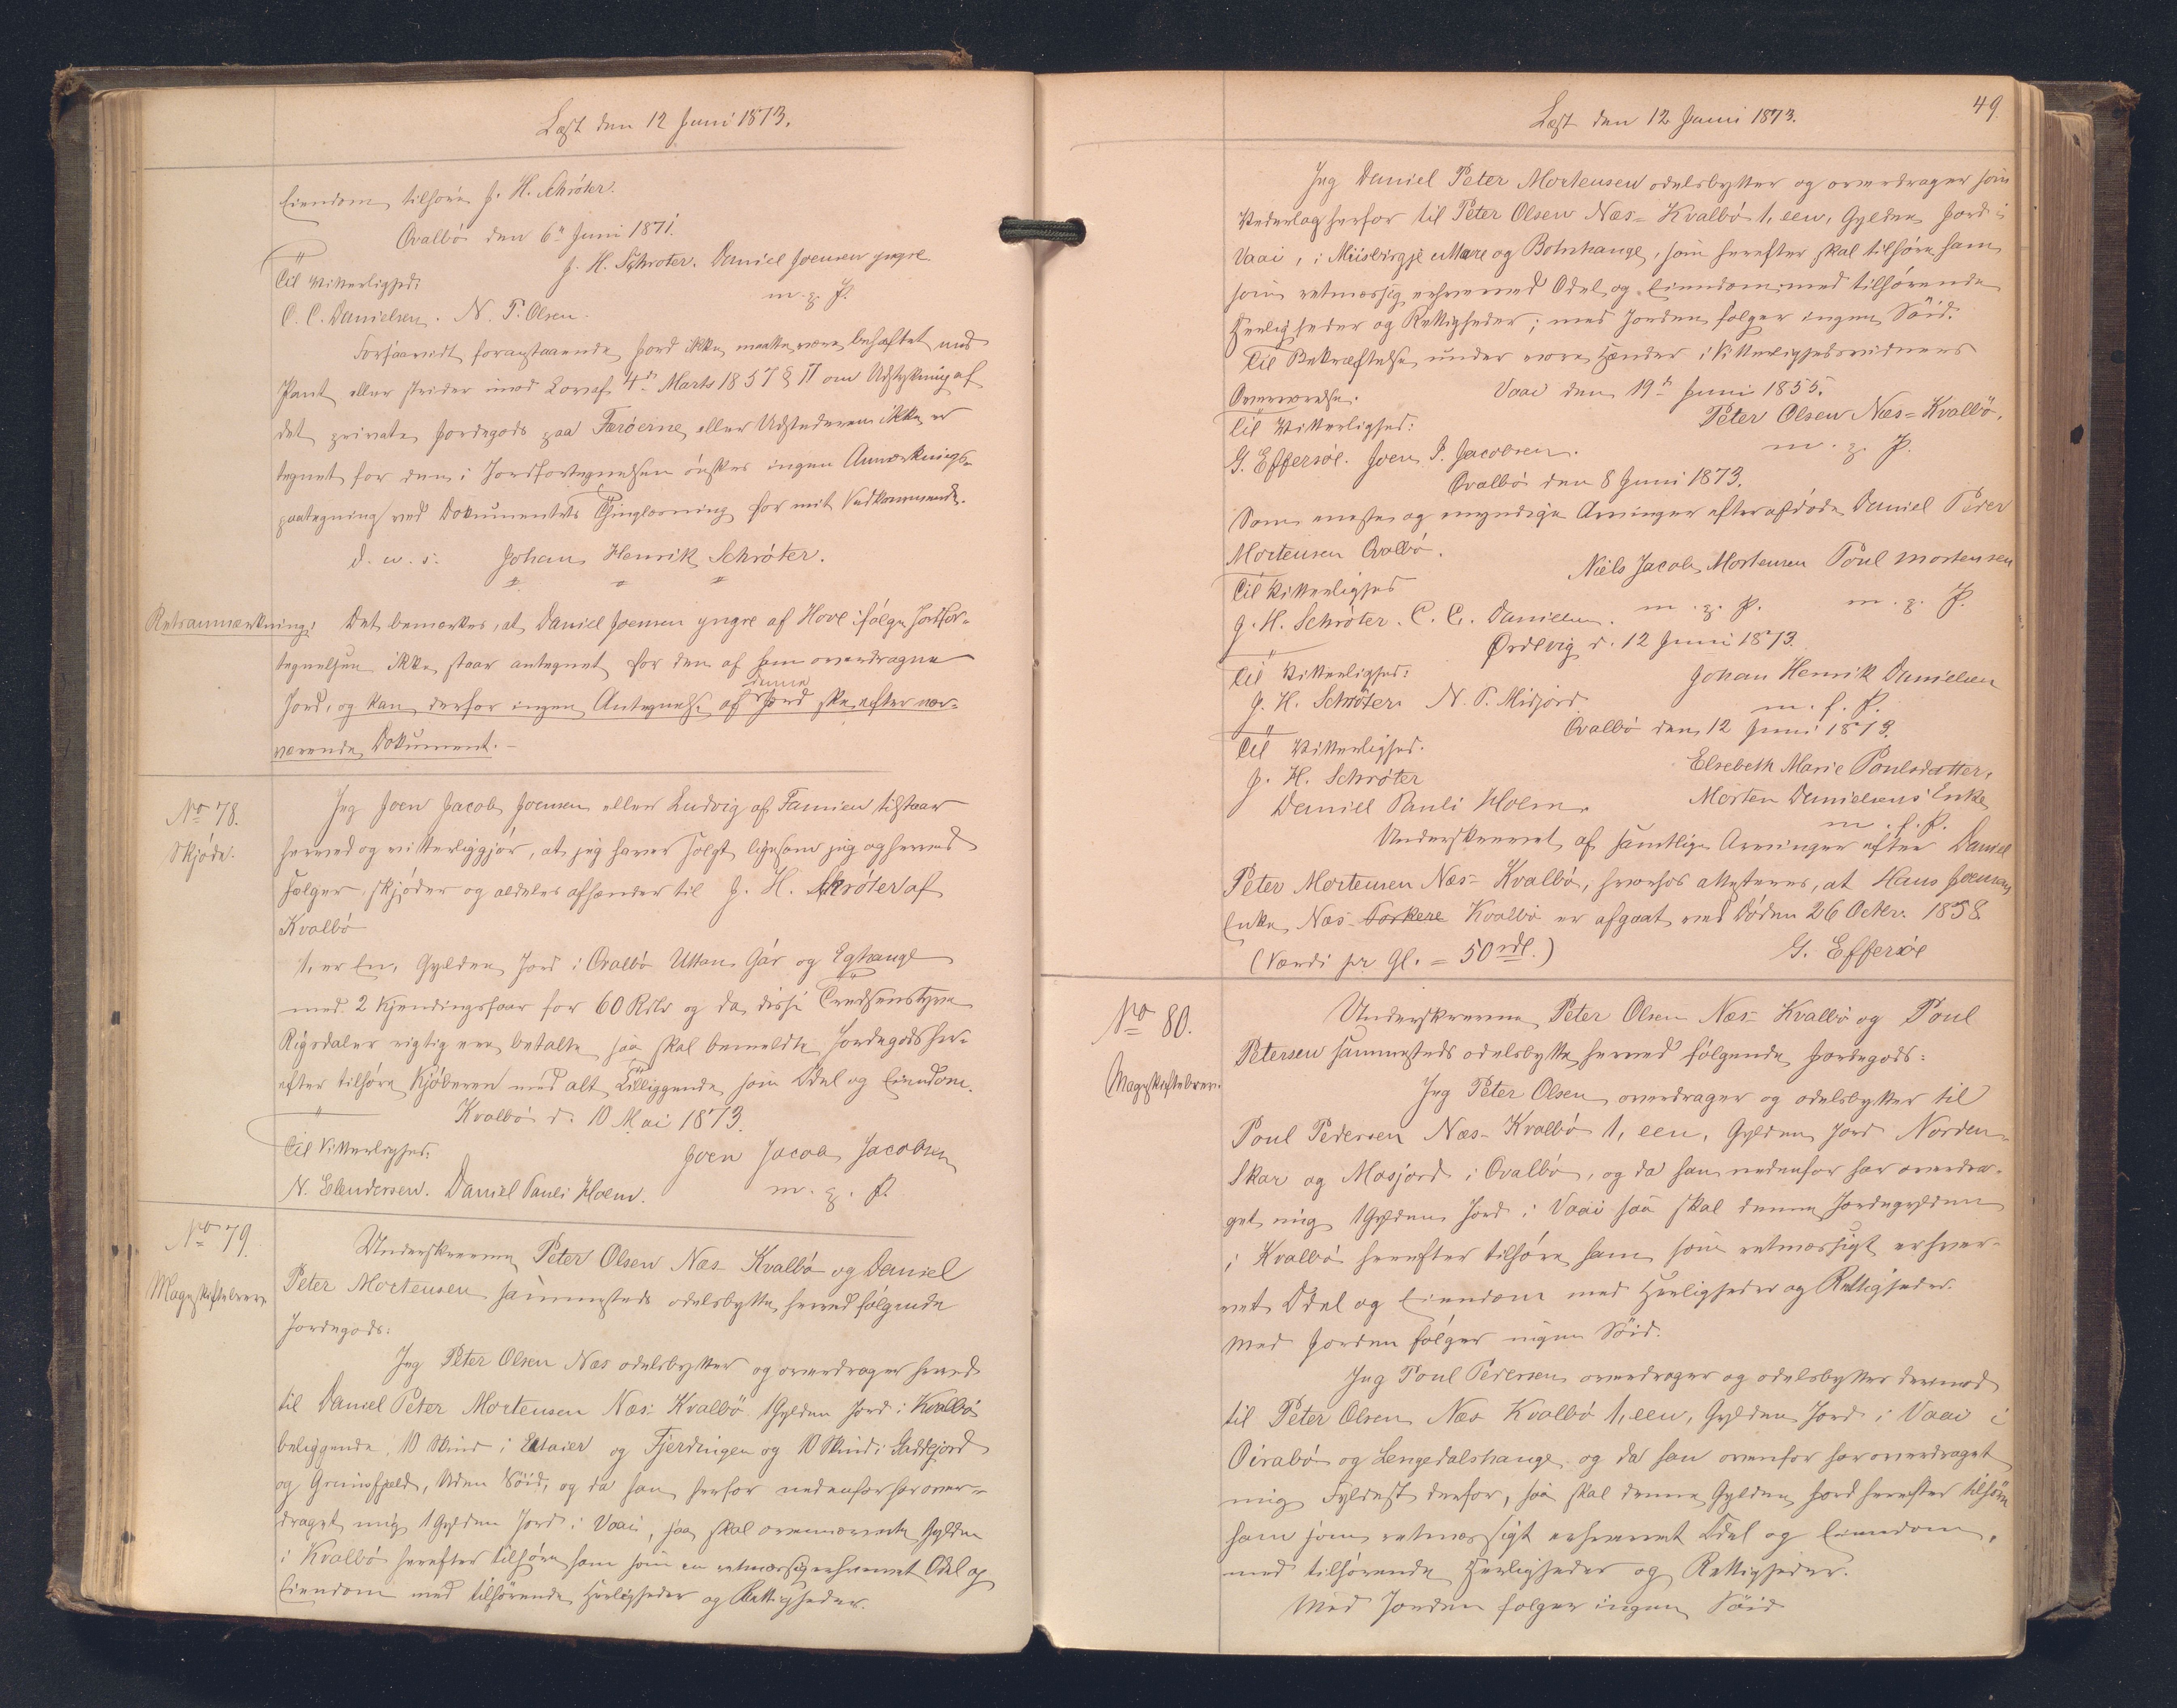 Læst den 12 Juni 1873.
Eiendom tilhøre J. H. Schrøter.
Qvalbø den 6te Juni 1871.
J. H. Schrøter. Daniel Joensen yngre
Til Vitterlighed:
m. p. P.
C. C. Danielsen. N. P. Olsen.
Forsaavidt foranstaaende Jord ikke maatte være behæftet med
Pant eller strider imod Lov af 4de Marts 1857 § 11 om Udstykning af
det private Jordegods paa Færøerne eller Udstederen ikke er
tegnet for den i Jordfortegnelsen ønskes ingen Anmærknings-
paategning ved Dokumentets Thinglæsning for mit Vedkommende.
d. u. s. Johan Henrik Schrøter.
Retsanmærkning: Det bemærkes, at Daniel Joensen yngre af Hove ifølge Jordfor-
tegnelsen ikke staar antegnet for den af ham overdragne
Jord, og kan derfor ingen Antegnelse af denne Jord ske efter nær-
værende Dokument.
No 78.
Skjøde.
Jeg Joen Jacob Joensen eller Ludvig af Famien tilstaar
herved og vitterliggjør, at jeg haver solgt ligesom jeg og herved
sælger, skjøder og aldeles afhænder til J. H. Schrøter af
Kvalbø
1, er En, Gylden Jord i Qvalbø Uttan Gár og Eghauge
med 2 Kjendingsfaar for 60 Rdlr og da disse Tredsenstyve
Rigsdaler rigtig ere betalte saa skal bemeldte Jordegods her-
efter tilhøre Kjøberen med alt Tilliggende som Odel og Eiendom.
Kvalbø d. 10 Mai 1873.
Til Vitterlighed:
Joen Jacob Jacobsen
N. Elendersen. Daniel Pauli Holm.
m. p. P.
No 79.
Mageskiftebrev
Underskrevne Peter Olsen Næs Kvalbø og Daniel
Peter Mortensen sammesteds odelsbytte herved følgende
Jordegods:
Jeg Peter Olsen Næs odelsbytter og overdrager herved
til Daniel Peter Mortensen Næs Kvalbø 1 Gylden Jord i Kvalbø
beliggende 10 Skind i og Fjerdingen og 10 Skind i Gaddejord
og Grimsfjeld, Uden Søid, og da han herfor nedenfor har over-
draget mig 1 Gylden Jord i Vaai, saa skal ovennævnte Gylden
i Kvalbø herefter tilhøre ham som en retmæssig erhvervet Odel og
Eiendom med tilhørende Herligheder og Rettigheder.
Læst den 12 Juni 1873.
49.
Jeg Daniel Peter Mortensen odelsbytter og overdrager som
Vederlag herfor til Peter Olsen Næs-Kvalbø 1, een, Gylden Jord i
Vaai, i Miisbirgje uttare og Botnhauge, som herefter skal tilhøre ham
som retmæssig erhvervet Odel og Eiendom med tilhørende
Herligheder og Rettigheder; med Jorden følger ingen Søid.
Til Bekræftelse under vore Hænder i Vitterlighedsvidners
Overværelse.
Vaai den 19de Juni 1855.
Til Vitterlighed:
Peter Olsen Næs-Kvalbø.
G. Effersøe. Joen P. Jacobsen.
m. p. P.
Qvalbø den 8 Juni 1873.
Som eneste og myndige Arvinger efter afdøde Daniel Peter
Mortensen Qvalbø.
Niels Jacob Mortensen Poul Mortensen
Til Vitterlighed
m. p. P. m. p. P.
J. H. Schrøter. C. C. Danielsen.
Ørdevig d. 12 Juni 1873.
Til Vitterlighed:
Johan Henrik Danielsen
J. H. Schrøter. N. P. Midjord.
m. f. P.
Qvalbø den 12 Juni 1873.
Til Vitterlighed.
J. H. Schrøter
Elsebeth Marie Poulsdatter,
Daniel Pauli Holm.
Morten Danielsens Enke
m. f. P.
Underskrevet af samtlige Arvinger efter Daniel
Peter Mortensen Næs-Kvalbø, hvorhos attesteres, at Hans Joensens
Enke Næs- Kvalbø er afgaaet ved Døden 26 Octbr. 1858.
(Værdi pr Gl. = 50 rdl.)
G. Effersøe
No 80.
Mageskiftebrev.
Underskrevne Peter Olsen Næs-Kvalbø og Poul
Petersen sammesteds odelsbytte herved følgende Jordegods:
Jeg Peter Olsen overdrager og odelsbytter til
Poul Pedersen Næs-Kvalbø 1, een, Gylden Jord Norden-
Skar og Mosjord i Qvalbø, og da han nedenfor har overdra-
get mig 1 Gylden Jord i Vaai saa skal denne Jordegylden
i Kvalbø herefter tilhøre ham som retmæssigt erhver-
vet Odel og Eiendom med Herligheder og Rettigheder.
Med Jorden følger ingen Søid.
Jeg Poul Pedersen overdrager og odelsbytter dermod
til Peter Olsen Næs Kvalbø 1, een, Gylden Jord i Vaai i
Oirabø og Lengedalshauge og da han ovenfor har overdraget
mig Fyldest derfor, saa skal denne Gylden Jord herefter tilhøre
ham som retmæssigt erhvervet Odel og Eiendom,
med tilhørende Herligheder og Rettigheder.
Med Jorden følger ingen Søid